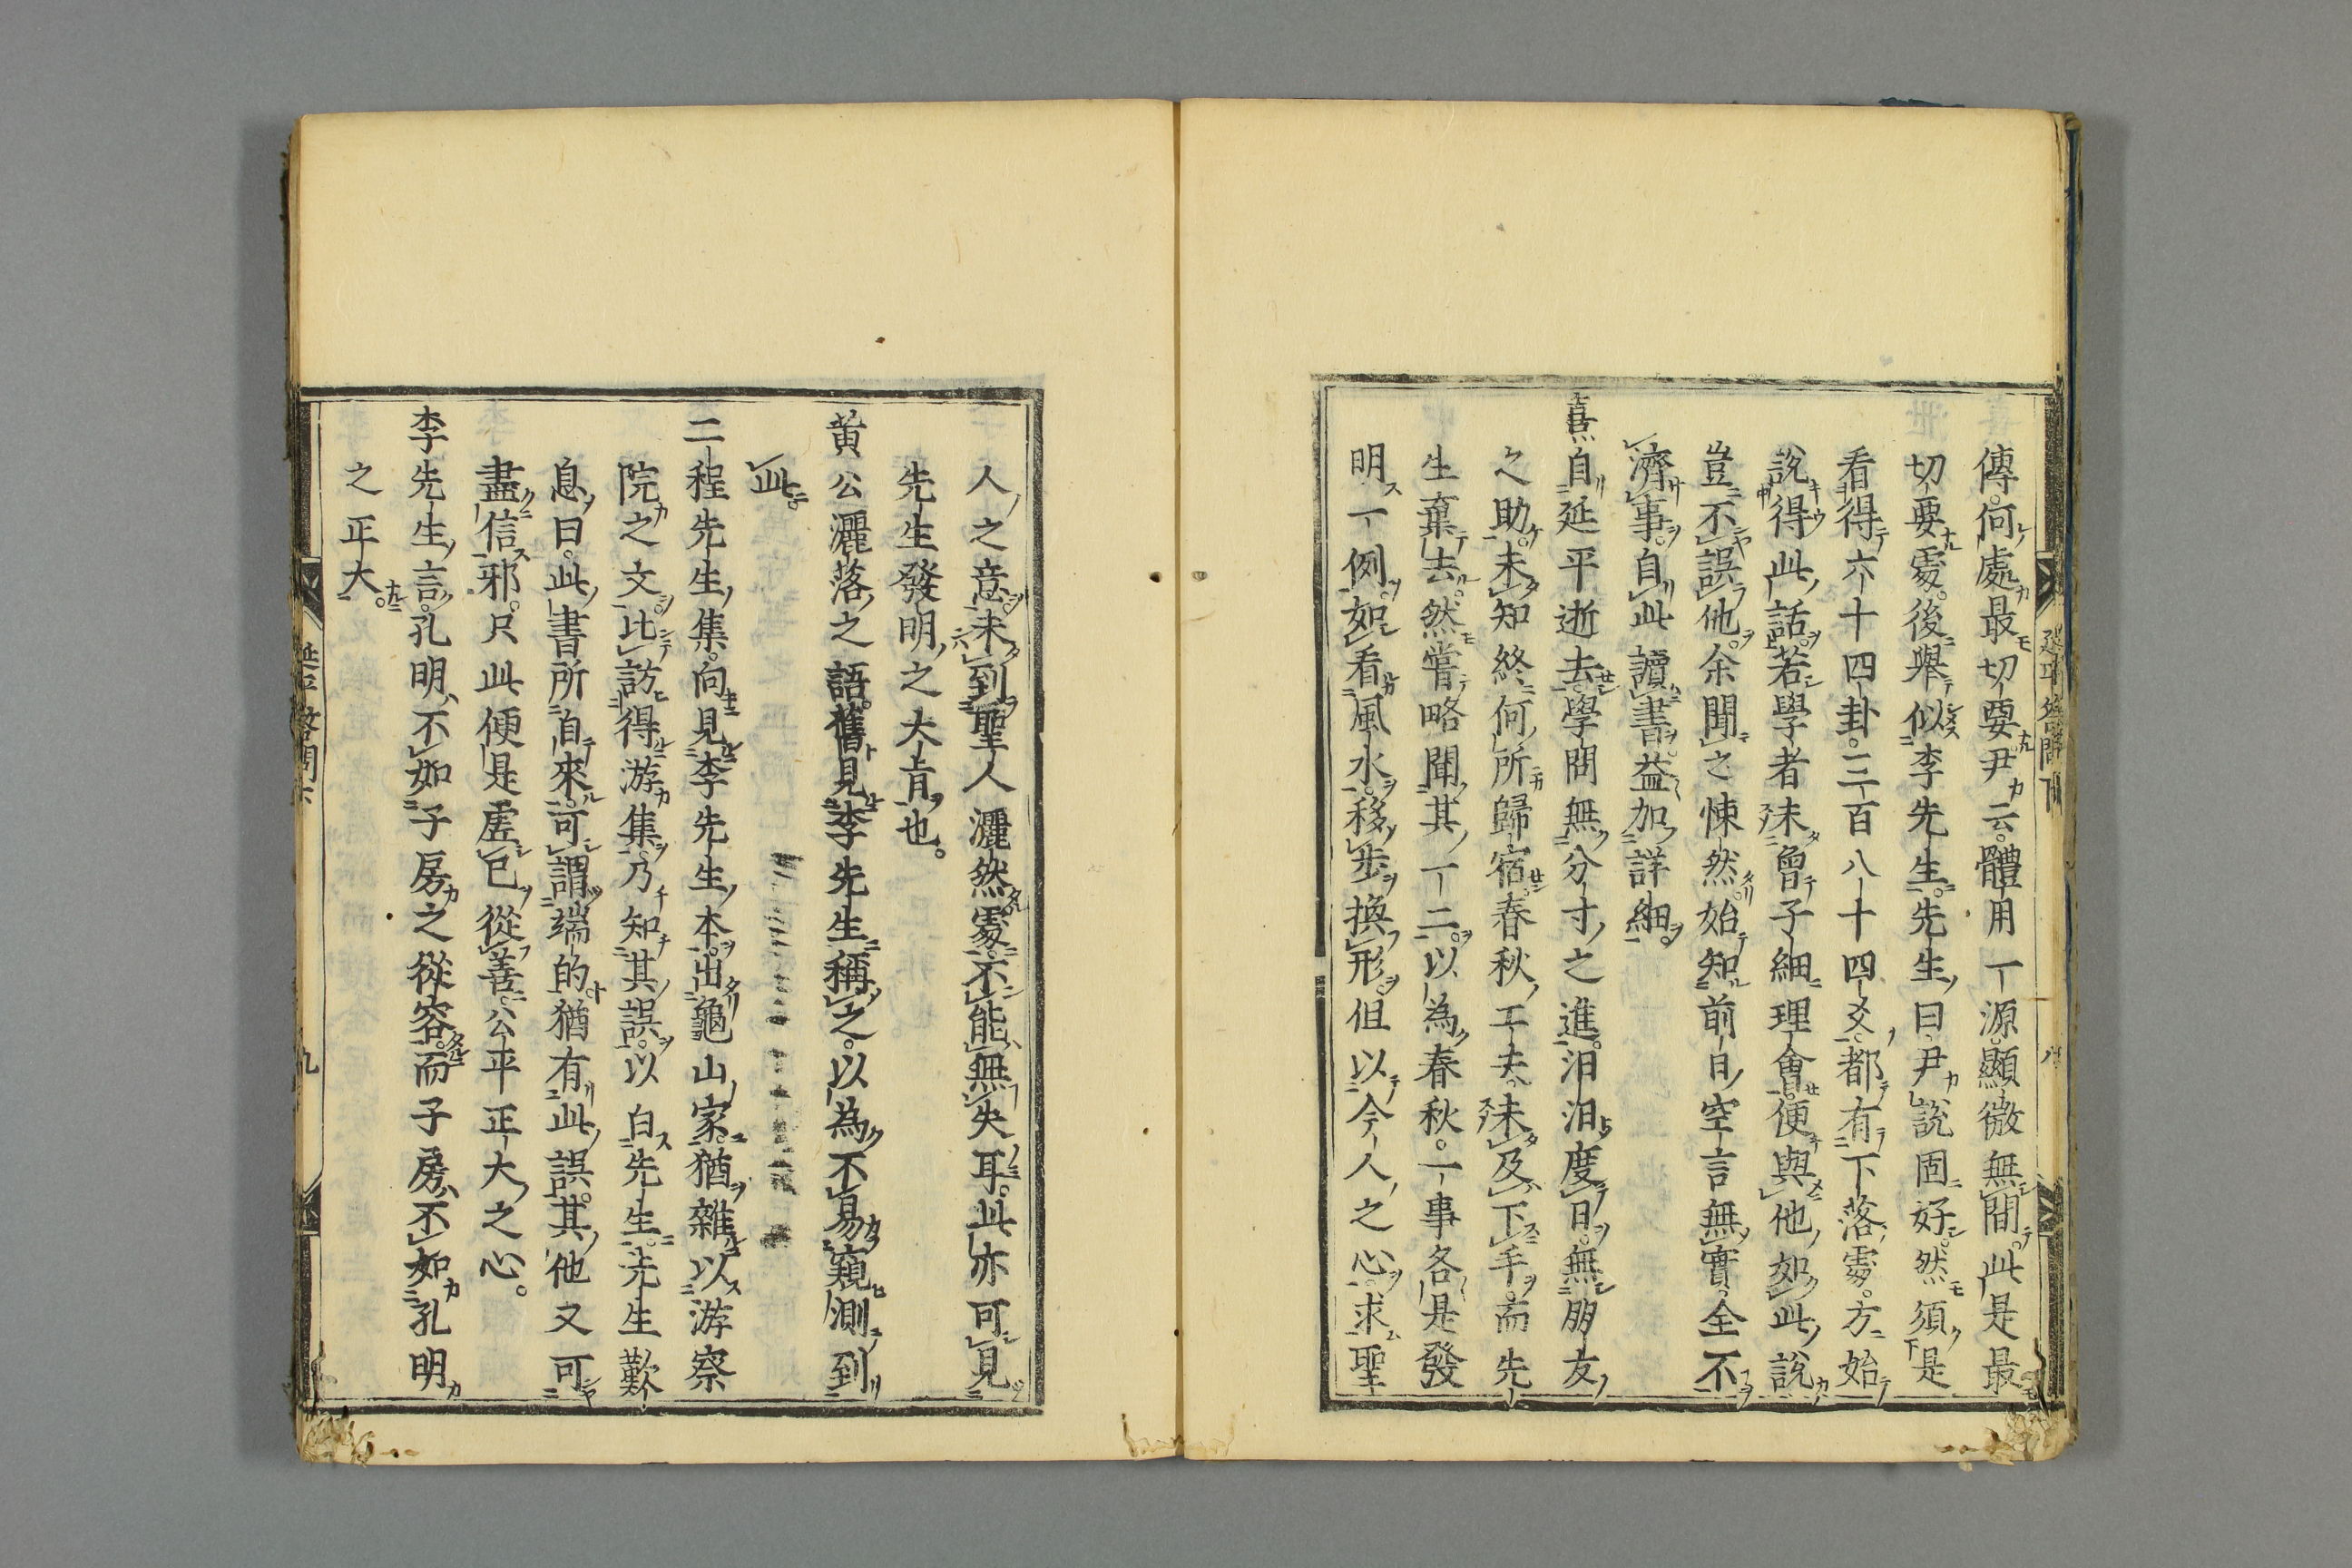 傳何處最切要尹云體用一源顯微無間此是最
切要處後舉似李先生先生曰尹說固好然須是
看得六十四卦三百八十四爻都有下落處方始
說得此話若學者未曾子細理會便與他如此說
豈不誤他余聞之悚然始知前日空言無實全不
濟事自此讀書益加詳細
熹自延平逝去學問無分寸之進汨汨度日無朋友
之助未知終何所歸宿春秋工夫未及下手而先
生棄去然嘗略聞其一二以為春秋一事各是發
明一例如看風水移步換形但以今人之心求聖
人之意未到聖人灑然處不能無失耳此亦可見
先生發明之大旨也
黃公灑落之語舊見李先生稱之以為不易窺測到
此
二程先生集向見李先生本出龜山家猶雜以游察
院之文比訪得游集乃知其誤以白先生先生歎
息曰此書所自來可謂端的猶有此誤其他又可
盡信邪只此便是虛己從善公平正大之心
李先生言孔明不如子房之從容而子房不如孔明
之正大
延平答問下
八
九